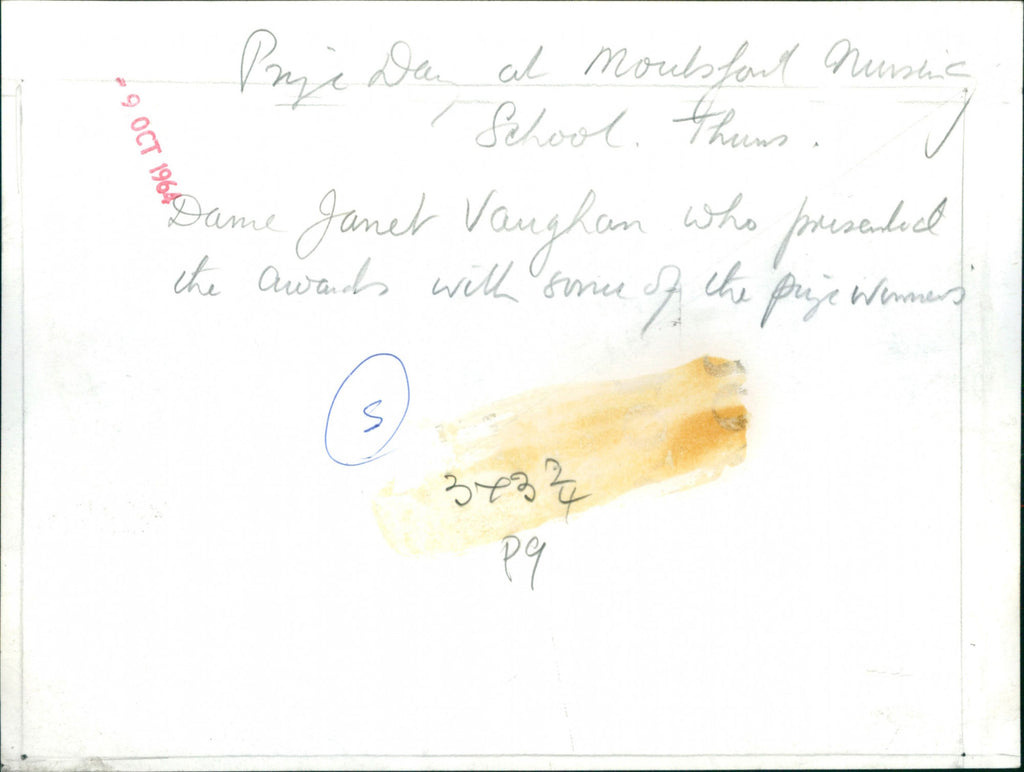 Prize Day at Moulsford Nursing
School. Thurs.
- 9 OCT 1964
Dame Janet Vaughan who presented
the awards with some of the prize winners
S
3 x 3 3/4
P9